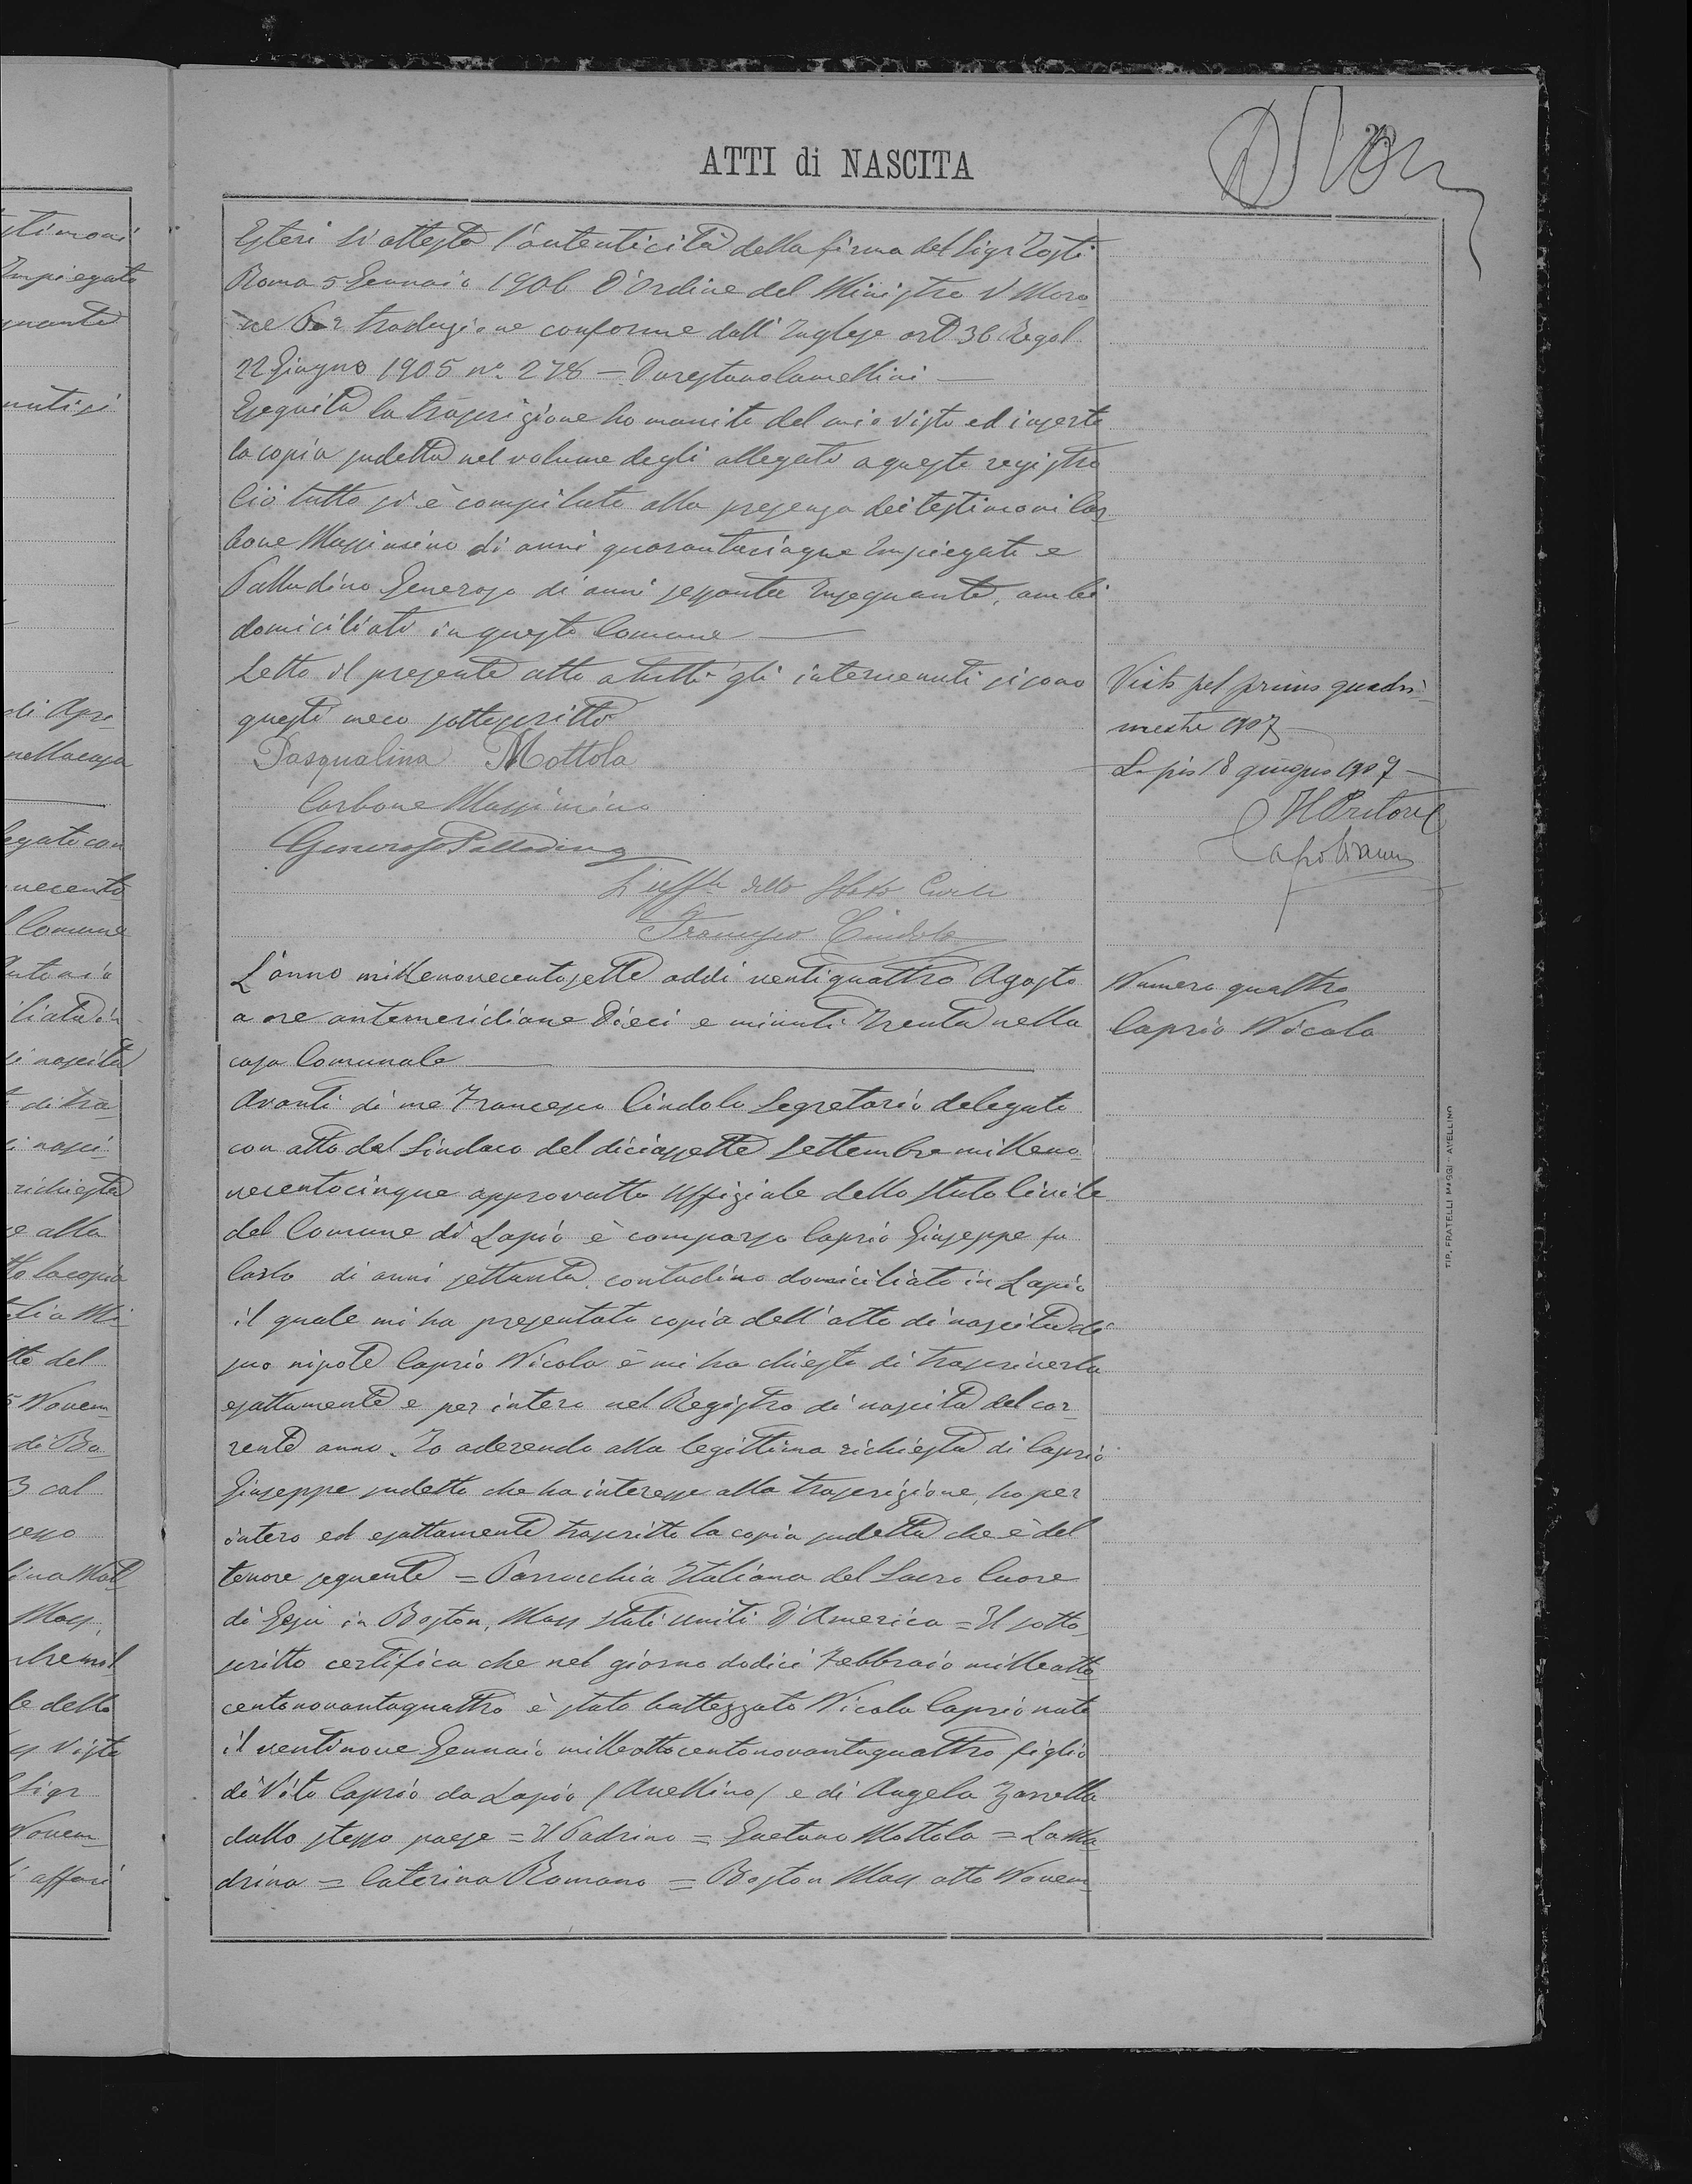 ATTI di NASCITA
Esteri si attesta l'autenticità della firma del Sigr Tosti
Roma 5 Gennaio 1906 D'Ordine del Ministro V Moro
ne Per traduzione conforme dall'Inglese art 36 Regol
22 Giugno 1905 n° 278 =
Eseguita la trascrizione ho munito del mio visto ed inserto
la copia sudetta nel volume degli allegati a questo registro
Ciò tutto si è compiluto alla presenza dei testimoni Car
bone Massimino di anni quarantacinque Impiegato e
Palladino Generoso di anni sessanta Insegnante, ambi
domiciliati in questo Comune
Letto il presente atto a tutti gli intervenuti si sono
questi meco sottoscritto
Pasqualina Mottola
Carbone Massimino
Generoso Palladino
L'uff.le dello Stato Civile
Francesco Cindolo
L'anno millenovecentosette addi ventiquattro Agosto
a ore antemeridiane Dieci e minuti Trenta nella
casa Comunale
Avanti di me Francesco Cindolo Segretario delegato
con atto del Sindaco del diciassette Settembre milleno
vecentocinque approvatto Uffiziale dello Stato Civile
del Comune di Lapio è comparso Caprio Giuseppe fu
Carlo di anni settanta, contadino domiciliato in Lapio
il quale mi ha presentato copia dell'atto di nascita di
suo nipote Caprio Nicola è mi ha chiesto di trascriverla
esattamente e per intero nel Registro di nascita del cor
rente anno. Io aderendo alla legittima richiesta di Caprio
Giuseppe sudetto che ha interesse alla trascrizione, ho per
intero ed esattamente trascritto la copia sudetta che è del
tenore seguente = Parrucchia Italiana del Sacro Cuore
di Gesù in Boston, Mass Stati Uniti D'America = Il sotto
scritto certifica che nel giorno dodici Febbraio milleotto
centonovantaquattro è stato battezzato Nicola Caprio nato
il ventinove Gennaio milleottocentonovantaquattro figlio
di Vito Caprio da Lapio (Avellino) e di Angela Zarrella
dallo stesso paese = Il Padrino = Gaetano Mottola = La Ma
drina = Caterina Romano = Boston Mass otto Novem
Visto pel primo quadri
mestre 1907
Lapio 18 giugno 1907
Il Pretore
Numero quattro
Caprio Nicola
TIP. FRATELLI MAGGI - AVELLINO
stimoni
Impiegato
gnante
nuti si
di Apr
nella casa
legato con
vecento
l Comune
Antonia
iliata in
di nascita
t di tra
i nasci
richiesta
e alla
tto la copia
elia Mi
tto del
5 Novem
di Bo
3 cal
sesso
lina Mott
Mass,
le dello
ss Visto
l Sigr
Novem
i affari